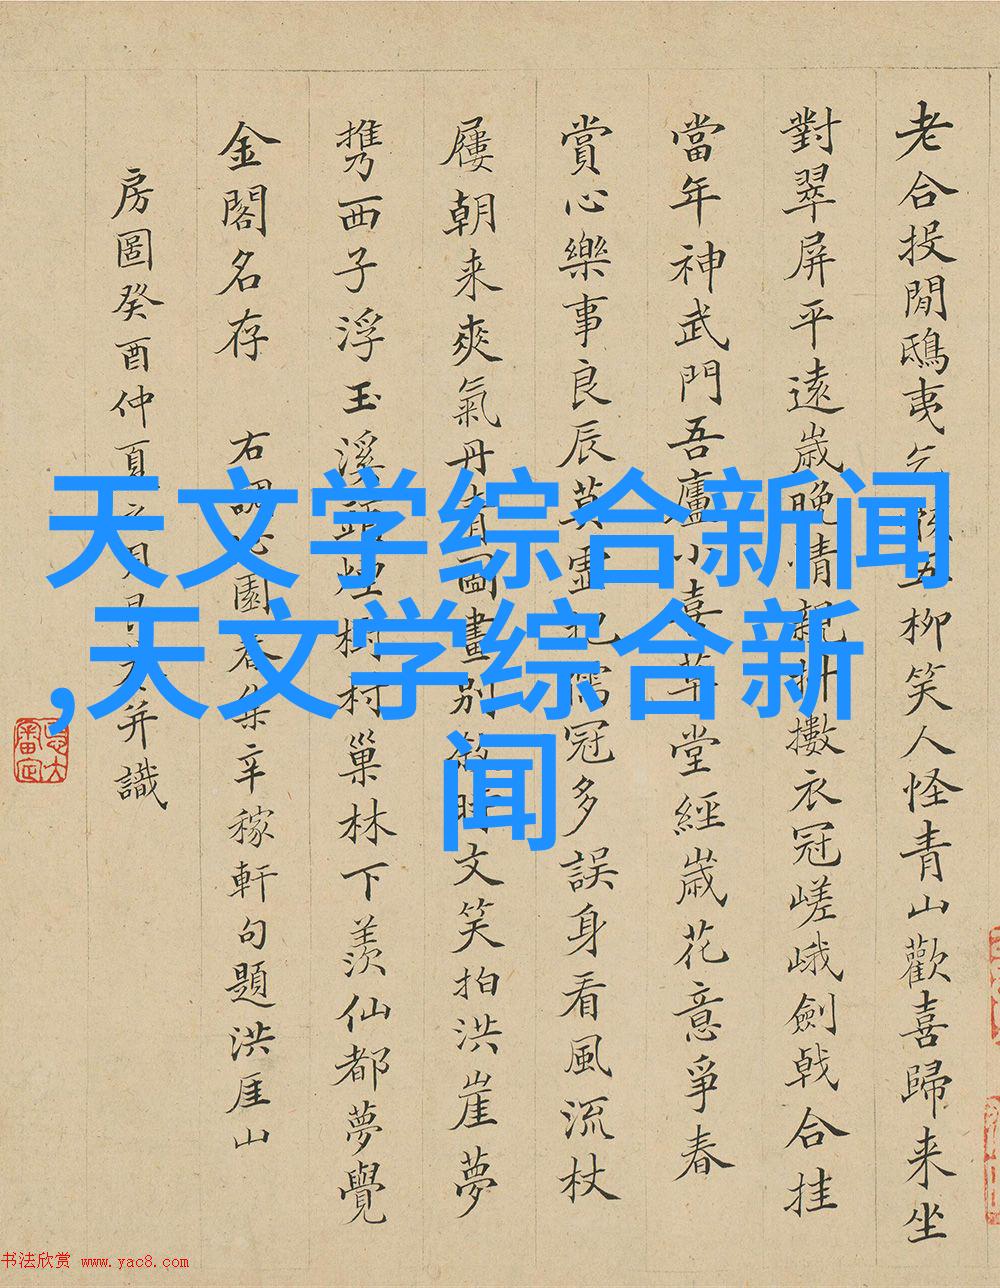 老合投閒鴟夷乞五柳笑人怪青山歡喜歸来坐
對翠屏平遠歲晚情親衣冠嵯峨劍戟合挂
當年神武門吾廬小喜草堂經歲花意爭春
賞心樂事良辰莫靈儒冠多誤身看風流杖
屨朝来爽氣丹青圖畫别時文笑拍洪崖夢
携西子浮玉溪頭煙樹村巢林下羨仙都夢覺
金閣名存 右調沁園春集辛稼軒句題洪厓山
房圖癸酉仲夏并識
天文学综合新闻
,天文学综合新
闻
书法欣赏 www.yac8.com